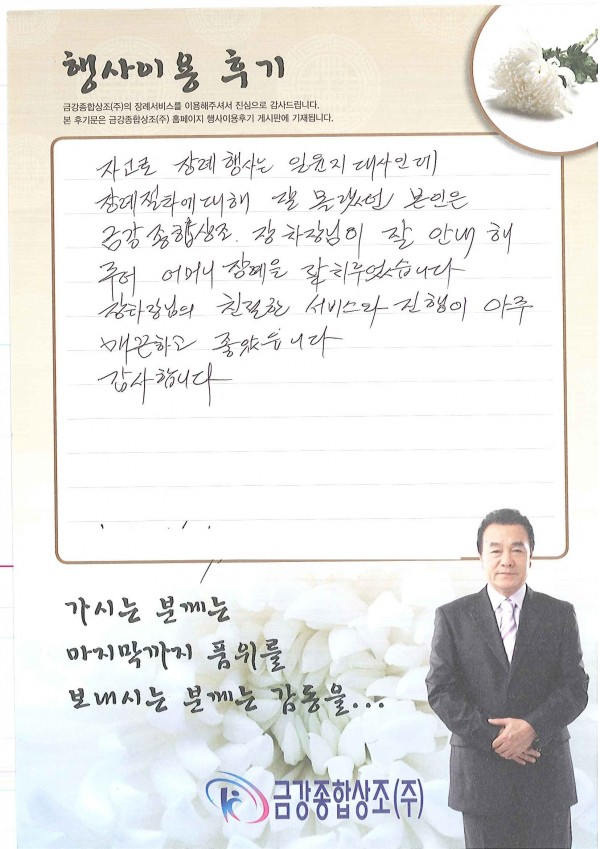 행사이용 후기
금강종합상조(주)의 장례서비스를 이용해주셔서 진심으로 감사드립니다.
본 후기문은 금강종합상조(주) 홈페이지 행사이용후기 게시판에 기재됩니다.
자고로 장례행사는 일륜지대사인데
장례절차에 대해 잘 몰랐던 본인은
금강종합상조. 장차장님이 잘 안내 해
주어 어머니 장례을 잘 치루었습니다
장차장님의 친절한 서비스와 진행이 아주
매끈하고 좋았읍니다
감사합니다
가시는 분께는
마지막까지 품위를
보내시는 분께는 감동을...
금강종합상조(주)